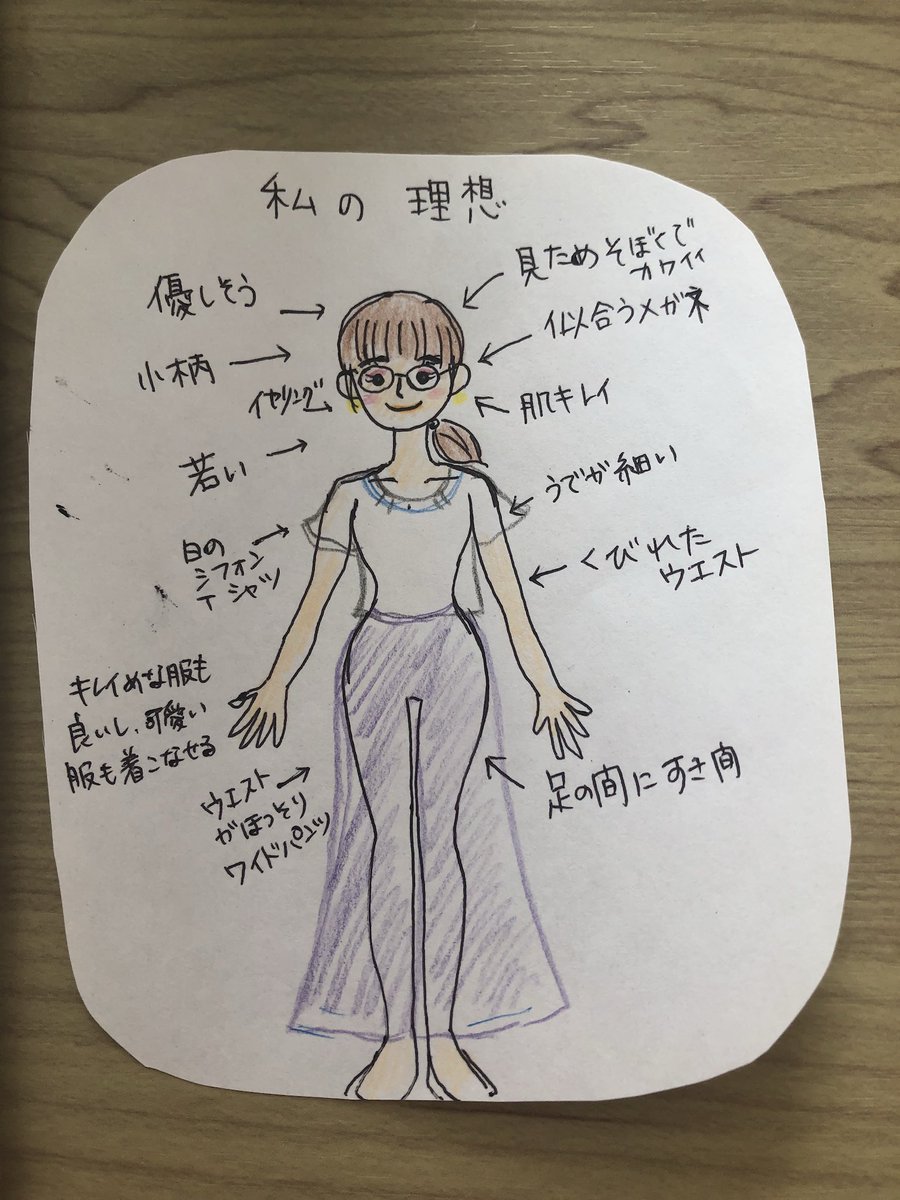 私の 理想
優しそう
見ためそぼくで
カワイイ
小柄
似合うメガネ
イヤリング
肌キレイ
若い
うでが細い
白の
シフォン
T シャツ
くびれた
ウエスト
キレイめな服も
良いし、可愛い
服も着こなせる
ウエスト
がほっそり
ワイドパンツ
足の間にすき間